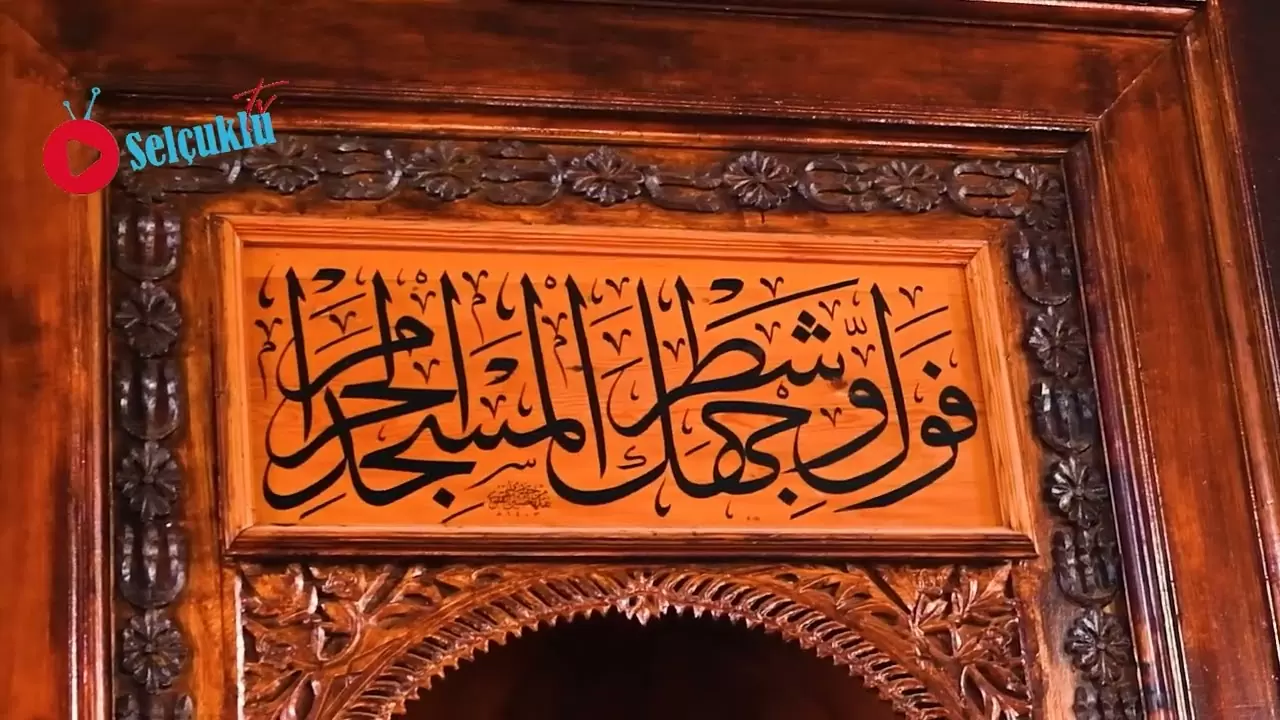 Selçuklu
tv
فول وجهك شطر المسجد الحرام